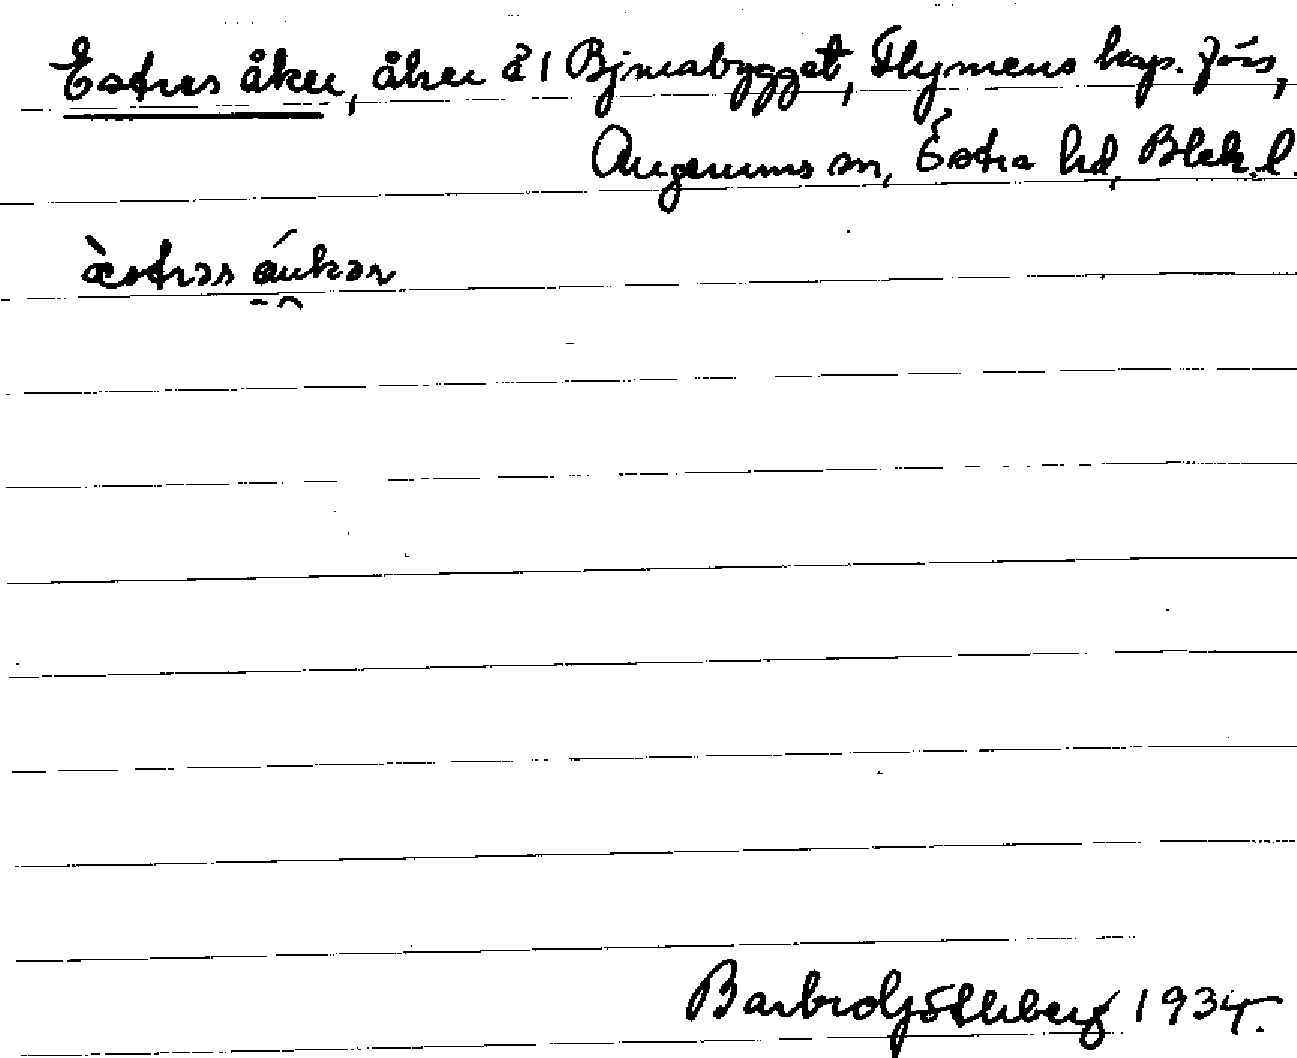 Estres åker, åker å 1 Bjmabygget, Flymens kap. förs,
Augerums sn, Östra hd, Blek. l.
àstrəs áukər
Barbro Götheberg 1934.